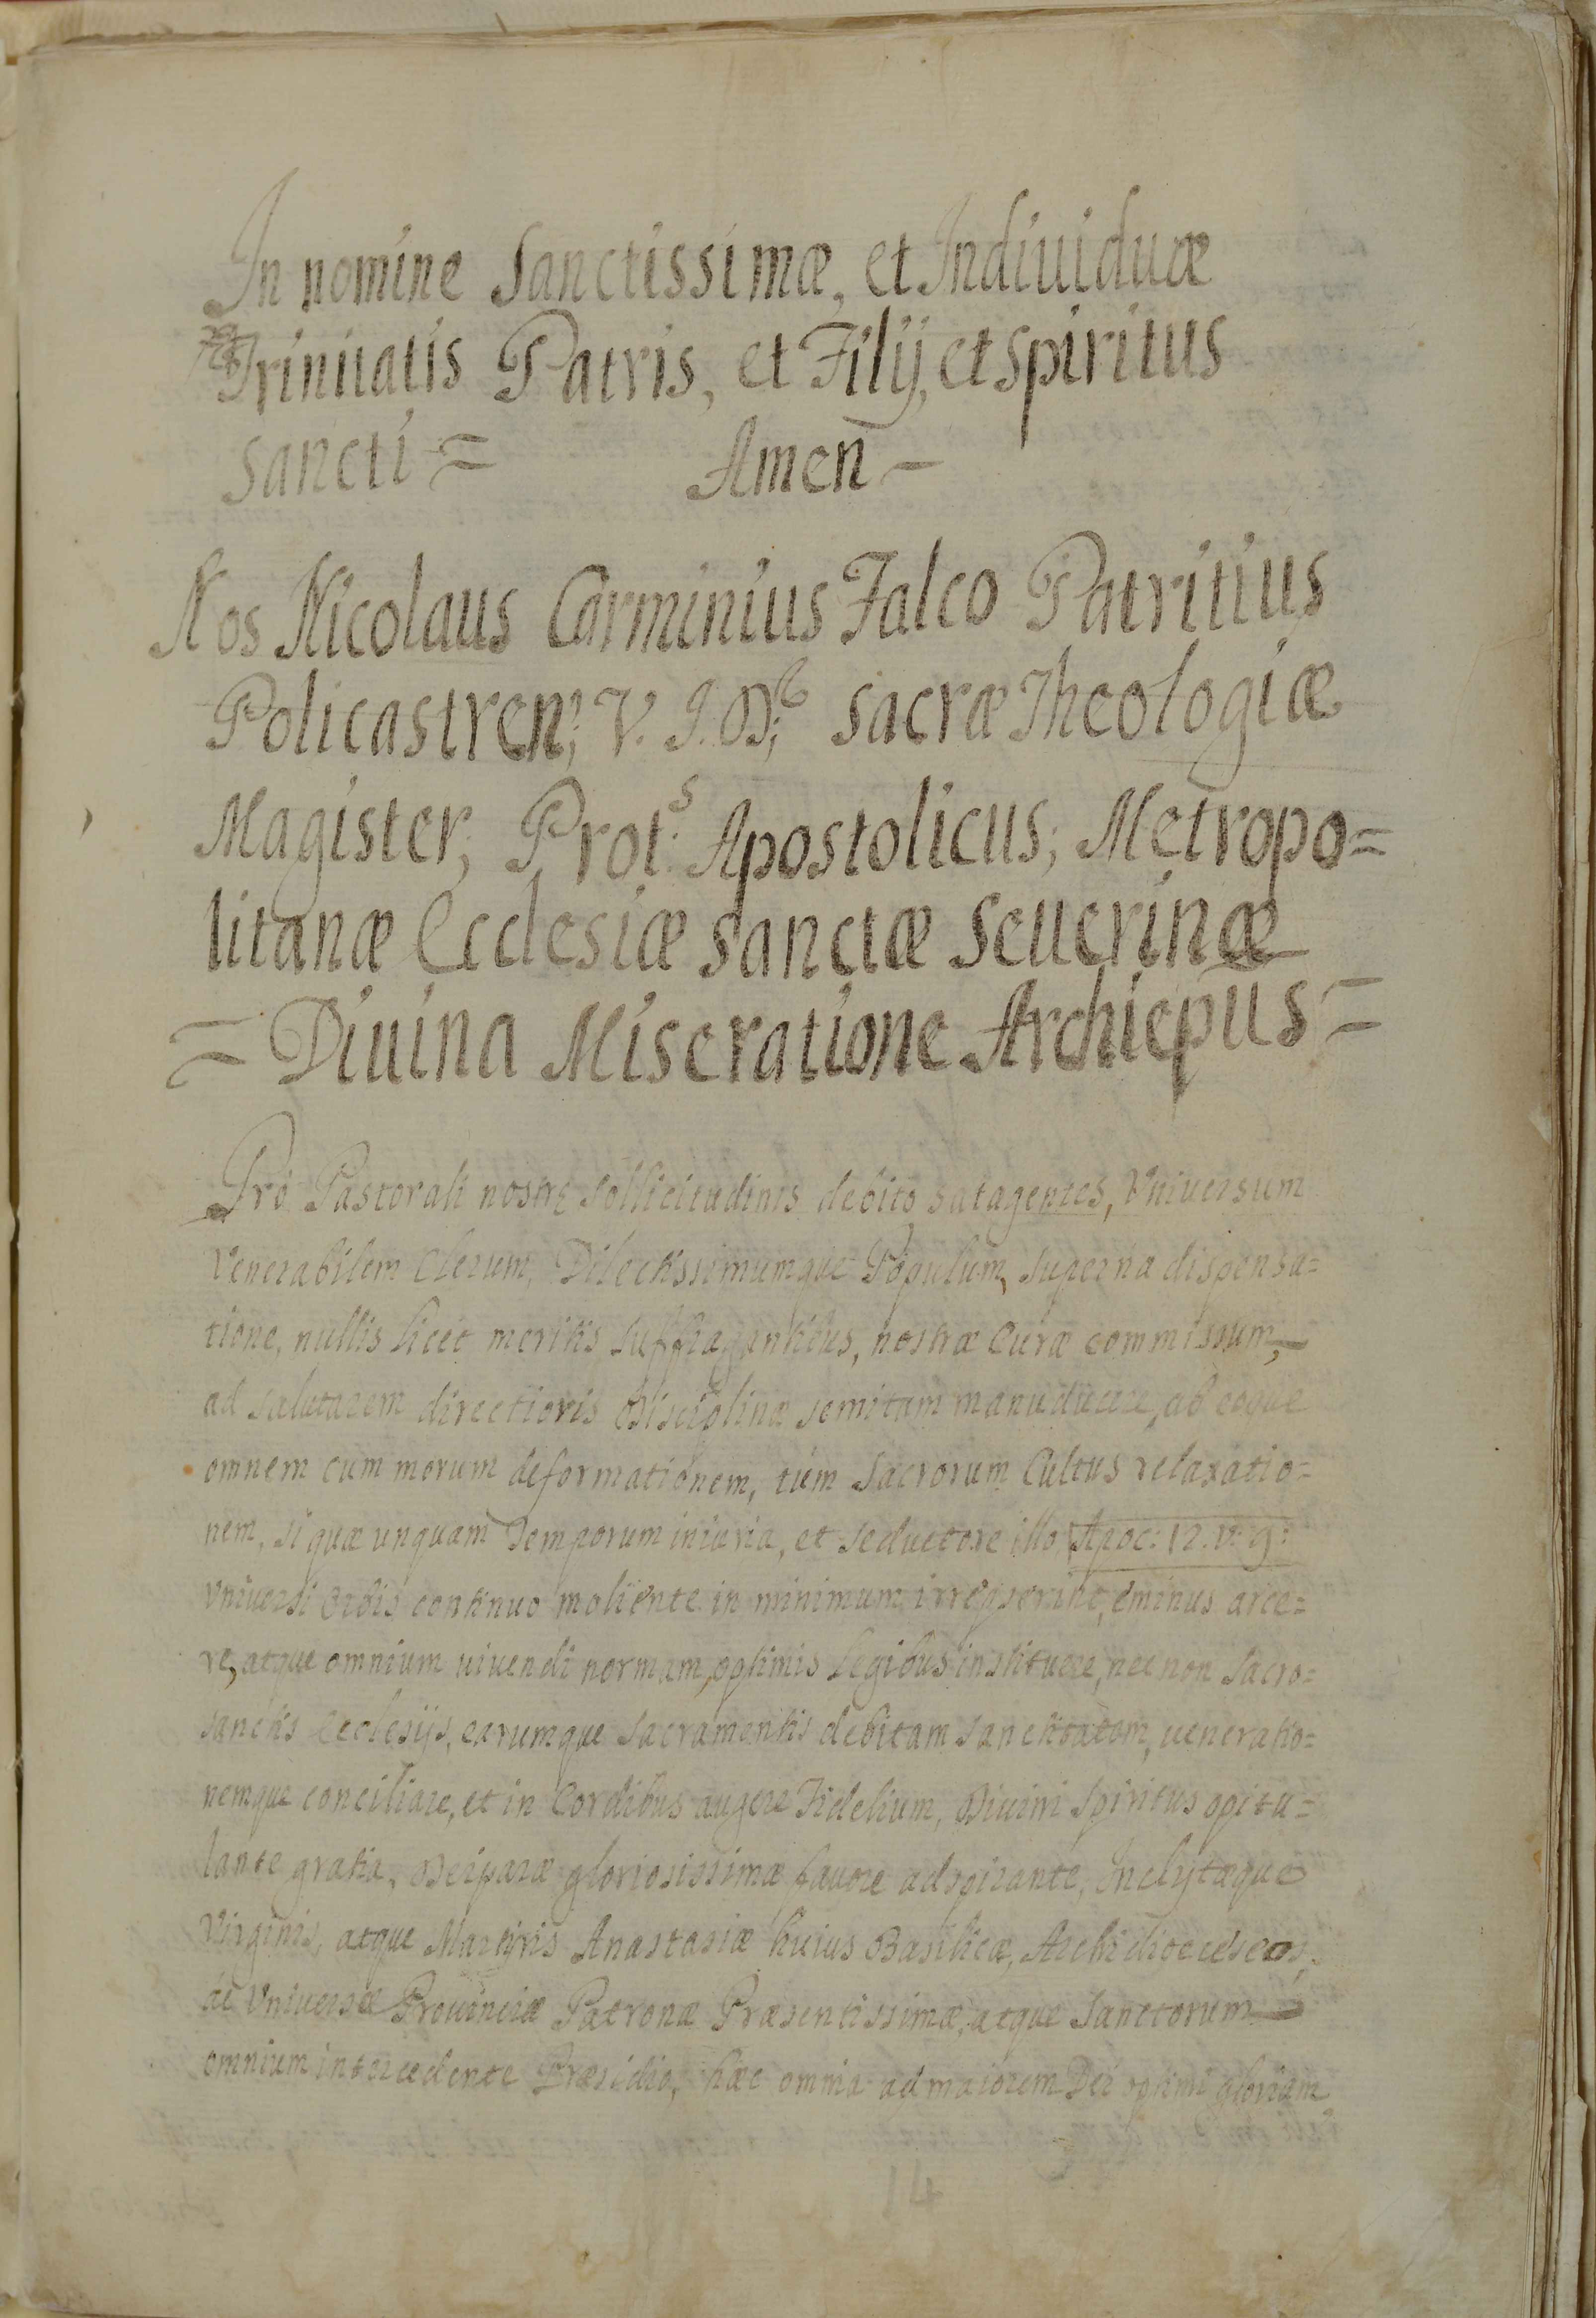 In nomine Sanctissimæ, et Indiuiduæ
Trinitatis Patris, et Filij, et Spiritus
Sancti = Amen -
Nos Nicolaus Carminius Falco Patritius
Policastren; V. I. D; Sacræ Theologiæ
Magister; Prot.s Apostolicus; Metropo=
litanæ Ecclesiæ Sanctæ Seuerinæ
= Diuina Miseratione Archiepūs =
Pro Pastorali nostrę sollicitudinis debito satagentes, Vniuersum
Venerabilem Clerum, Dilectissimumque Populum, superna dispensa=
tione, nullis licet meritis suffragantibus, nostræ Curæ commissum,
ad salutarem directioris Disciplinæ semitam manuducere, ab eoque
omnem cum morum deformationem, tùm Sacrorum Cultus relaxatio=
nem, si quæ unquam Temporum iniuria, et seductore illo Apoc: 12. v. 9:
vniuersi Orbis continuo moliente in minimum irrepserint, eminus arce=
re, atque omnium uiuendi normam, optimis Legibus instituere, nec non Sacro=
sanctis Ecclesijs, earumque Sacramentis debitam sanctitatem, ueneratio=
nemque conciliare, et in Cordibus augere Fidelium, Diuini Spiritus opitu=
lante gratia, Deiparæ gloriosissimæ fauore adspirante, Inclytæque
Virginis, atque Martyris Anastasiæ huius Basilicæ, Archidioeceseos,
ac Vniuersæ Prouinciæ Patronæ Præsentissimæ, atque Sanctorum
omnium intercedente Præsidio, hæc omnia ad maiorem Dei optimi gloriam
14